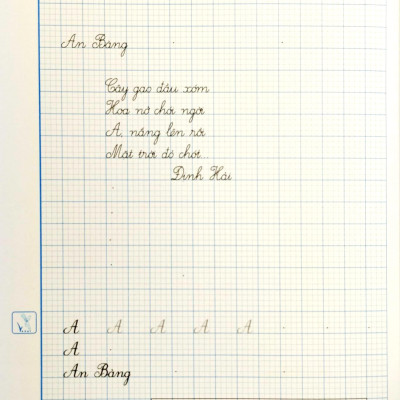 An Bang
Cây gạo đầu xóm
Hoa nở chói ngời
A, nắng lên rồi
Mặt trời đỏ chót...
Định Hải
A A A A A
A
An Bang